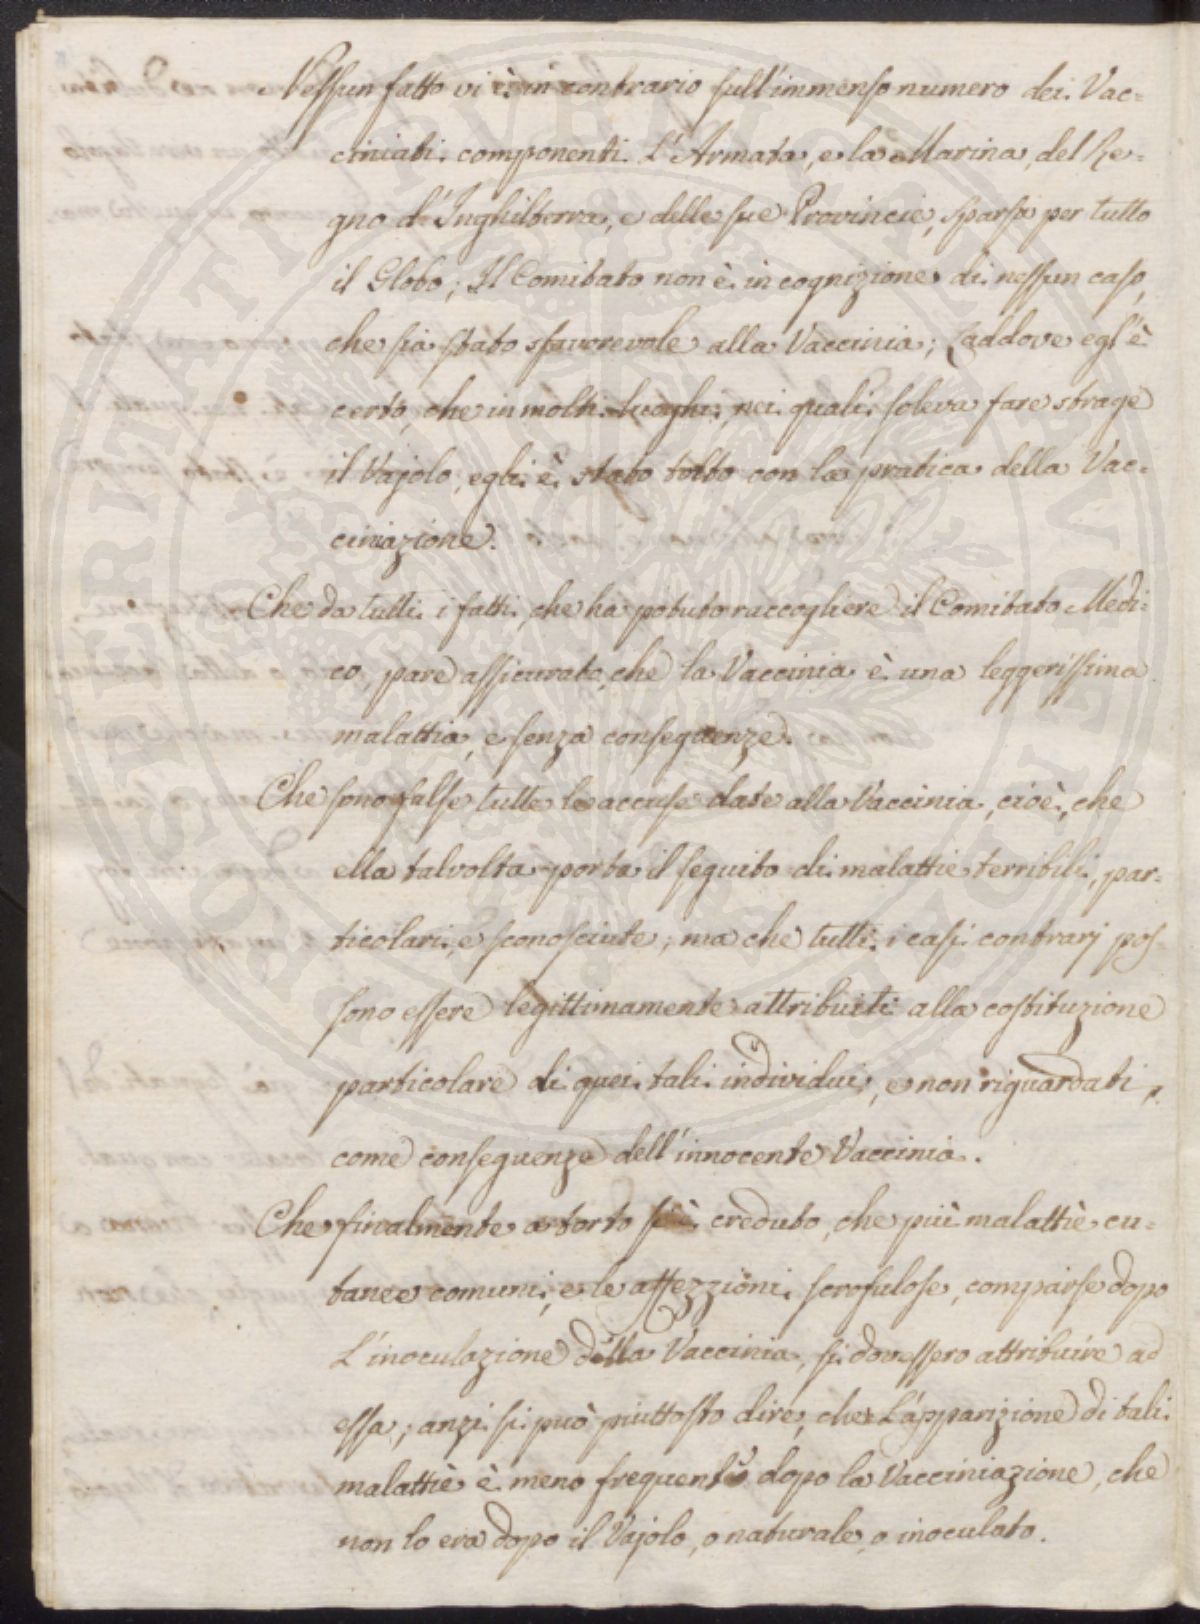 Nessun fatto vi è in contrario sull'immenso numero dei Vac=
ciniati componenti L'Armata, e la Marina, del Re=
gno d'Inghilterra, e delle sue Provincie, sparsi per tutto
il Globo; Il Comitato non è in cognizione di nessun caso,
che sia stato sfavorevole alla Vaccinia; Laddove egl'è
certo, che in molti luoghi, nei quali soleva fare strage
il Vajolo, egli è stato tolto con la pratica della Vac=
ciniazione.
Che da tutti i fatti, che ha potuto raccogliere il Comitato Medi=
co, pare assicurato, che la Vaccinia è una leggerissima
malattia, e senza conseguenze.
Che sono false tutte le accuse date alla Vaccinia, cioè, che
ella talvolta porta il seguito di malattie terribili, par=
ticolari, e sconosciute; ma che tutti i casi contrarj pos=
sono essere legittimamente attribuiti alla costituzione
particolare di quei tali individui, e non riguardati,
come conseguenze dell'innocente Vaccinia.
Che finalmente a torto si è creduto, che più malattie cu=
tanee comuni, e le affezzioni scrofulose, comparse dopo
L'inoculazione della Vaccinia, si dovessero attribuire ad
essa; anzi si può piuttosto dire, che L'apparizione di tali
malattie è meno frequente dopo la Vacciniazione, che
non lo era dopo il Vajolo, o naturale, o inoculato.
PUBLICAE
PROSPERITATI